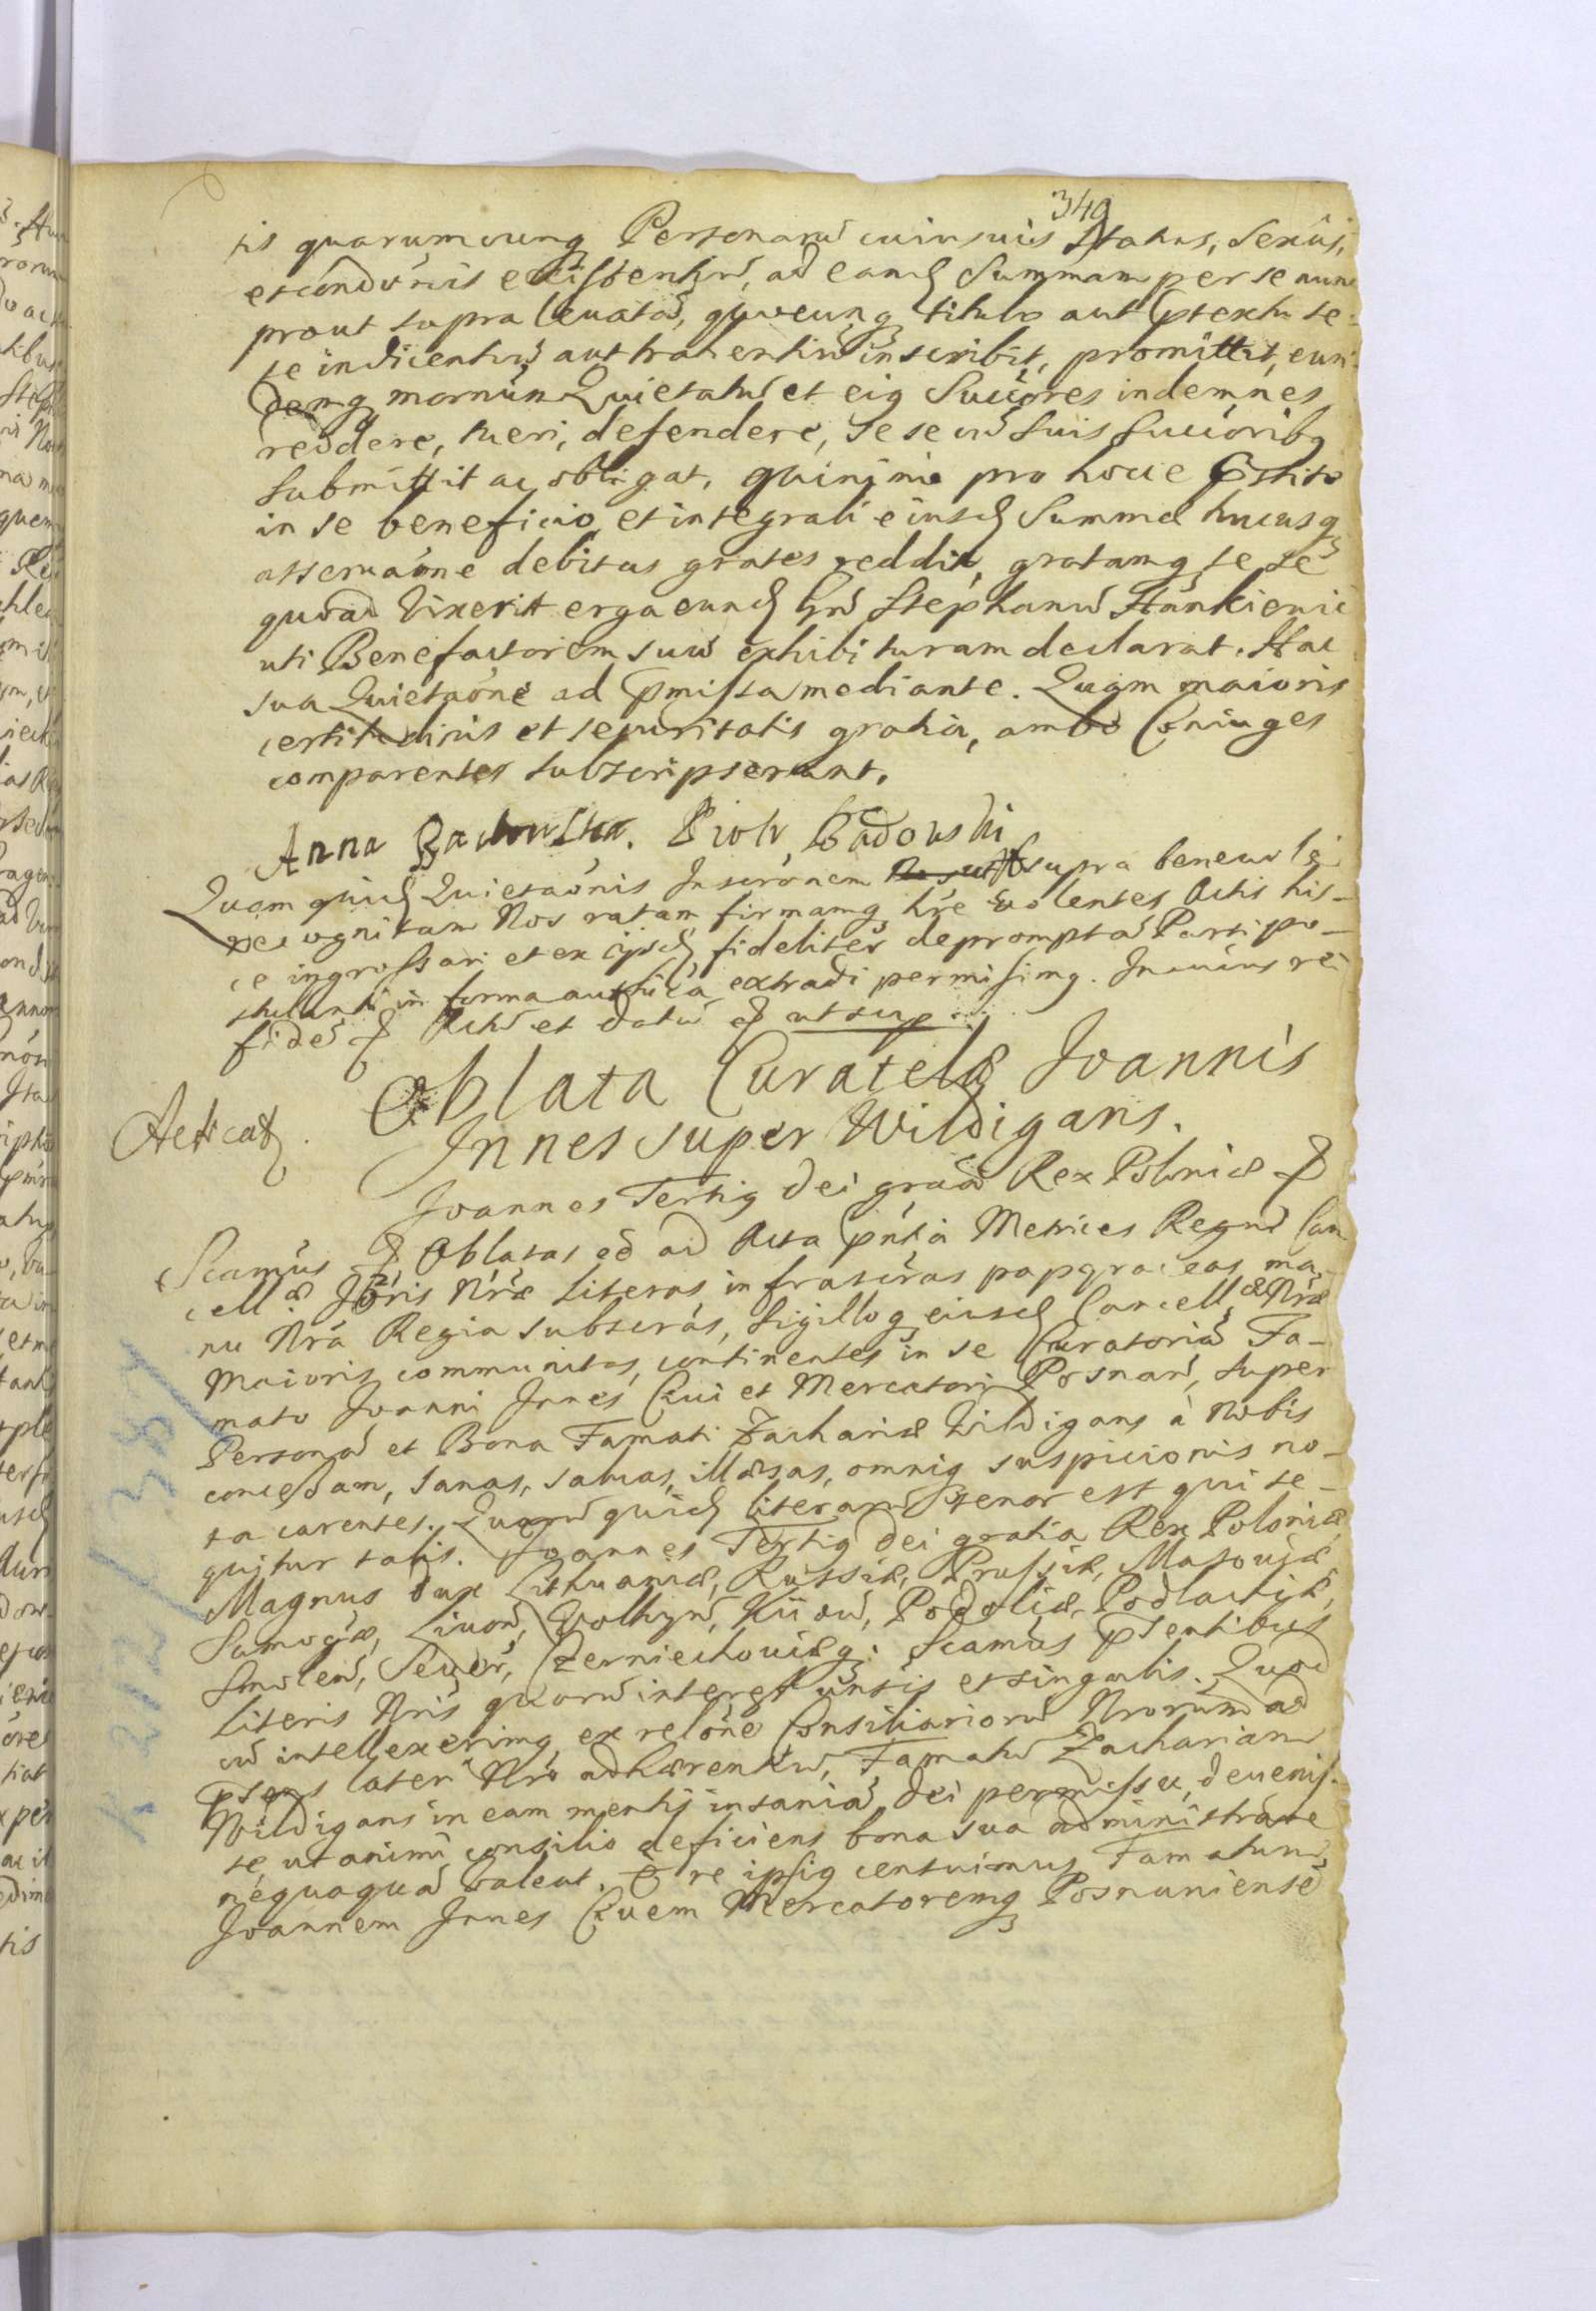 349
tis quarumcunq Personarū cuiusuis Status, Sexûs,
et condōnis existentiū, ad eand Summam per se nunc
prout supra leuatā, quocunq titulo aut ptextu se
se indicentiū aut trahentiū inscribit, promittit, eun
demq Quietatū et eiq Succōres indemnes
reddere, tueri, defendere, se se cū suis succōribq
submittit ac obligat, quinimo pro hocce pstito
in se beneficio, et integrali eiusd Summæ hucusq
asseruaōne debitas grates reddit, gratamq se se
quoad vixerit erga eund Gnū Stephanū Hankieuic
uti Benefactorem suū exhibituram declarat. Hac
sua Quietaōne ad pmissa mediante. Quam maioris
certitudinis et securitatis gratia, ambo Coniuges
comparentes subscripserunt.
Anna Badowska. Piotr Badowski
Quam quid Quietaōnis Inscrōnem supra beneuole
recognitam Nos ratam firmamq hre uolentes Actis his-
ce ingrossari et ex ijsd fideliter depromptā Parti po-
stulanti in forma authca extradi permisimq. In cuius rei
fidē Actū et datū ut sup.
Oblata Curatelæ Joannis
Innes super Wildigans.
Joannes Tertiq Dei grāa Rex Poloniæ
Scamūs Oblatas ēē ad Acta pntia Metrices Regni Can
cellæ Mōris Nræ literas infrascrās papyraceas, ma-
nu Nrā Regia subscrās, Sigilloq eiusd Cancellæ Nræ
Maioris communitas, continentes in se Curatoriā Fa-
mato Joanni Innes Ciui et Mercatori Posnan, super
Personā et Bona Famati Zachariæ Wildigans à Nobis
concessam, sanas, saluas, illæsas, omniq suspicionis no-
ta carentes. Quarū quid literarū tenor est qui se-
quitur talis. Joannes Tertiq Dei gratia Rex Poloniæ,
Magnus Dux Lithuaniæ, Russiæ, Prussiæ, Masouiæ,
Samogiæ, Liuon, Volhyn, Kiiou, Podoliæ, Podlachiæ,
Smolen, Seuer, Czerniechouiæq. Scamūs psentibus
literis Nris quorū interest uniis et singulis. Quod
cū intellexerimq ex relōne Consiliariorū Nrorum ad
latere Nrō adhærentiū, Famatū Zachariam
Wildigans in eam mentis insaniā, Dei permissu, deuenis-
se, ut animi consilio deficiens bona sua administrare
nequaquā valeat. E re ipsiq censuimus Famatum
Joannem Innes Ciuem Mercatoremq Posnaniensē